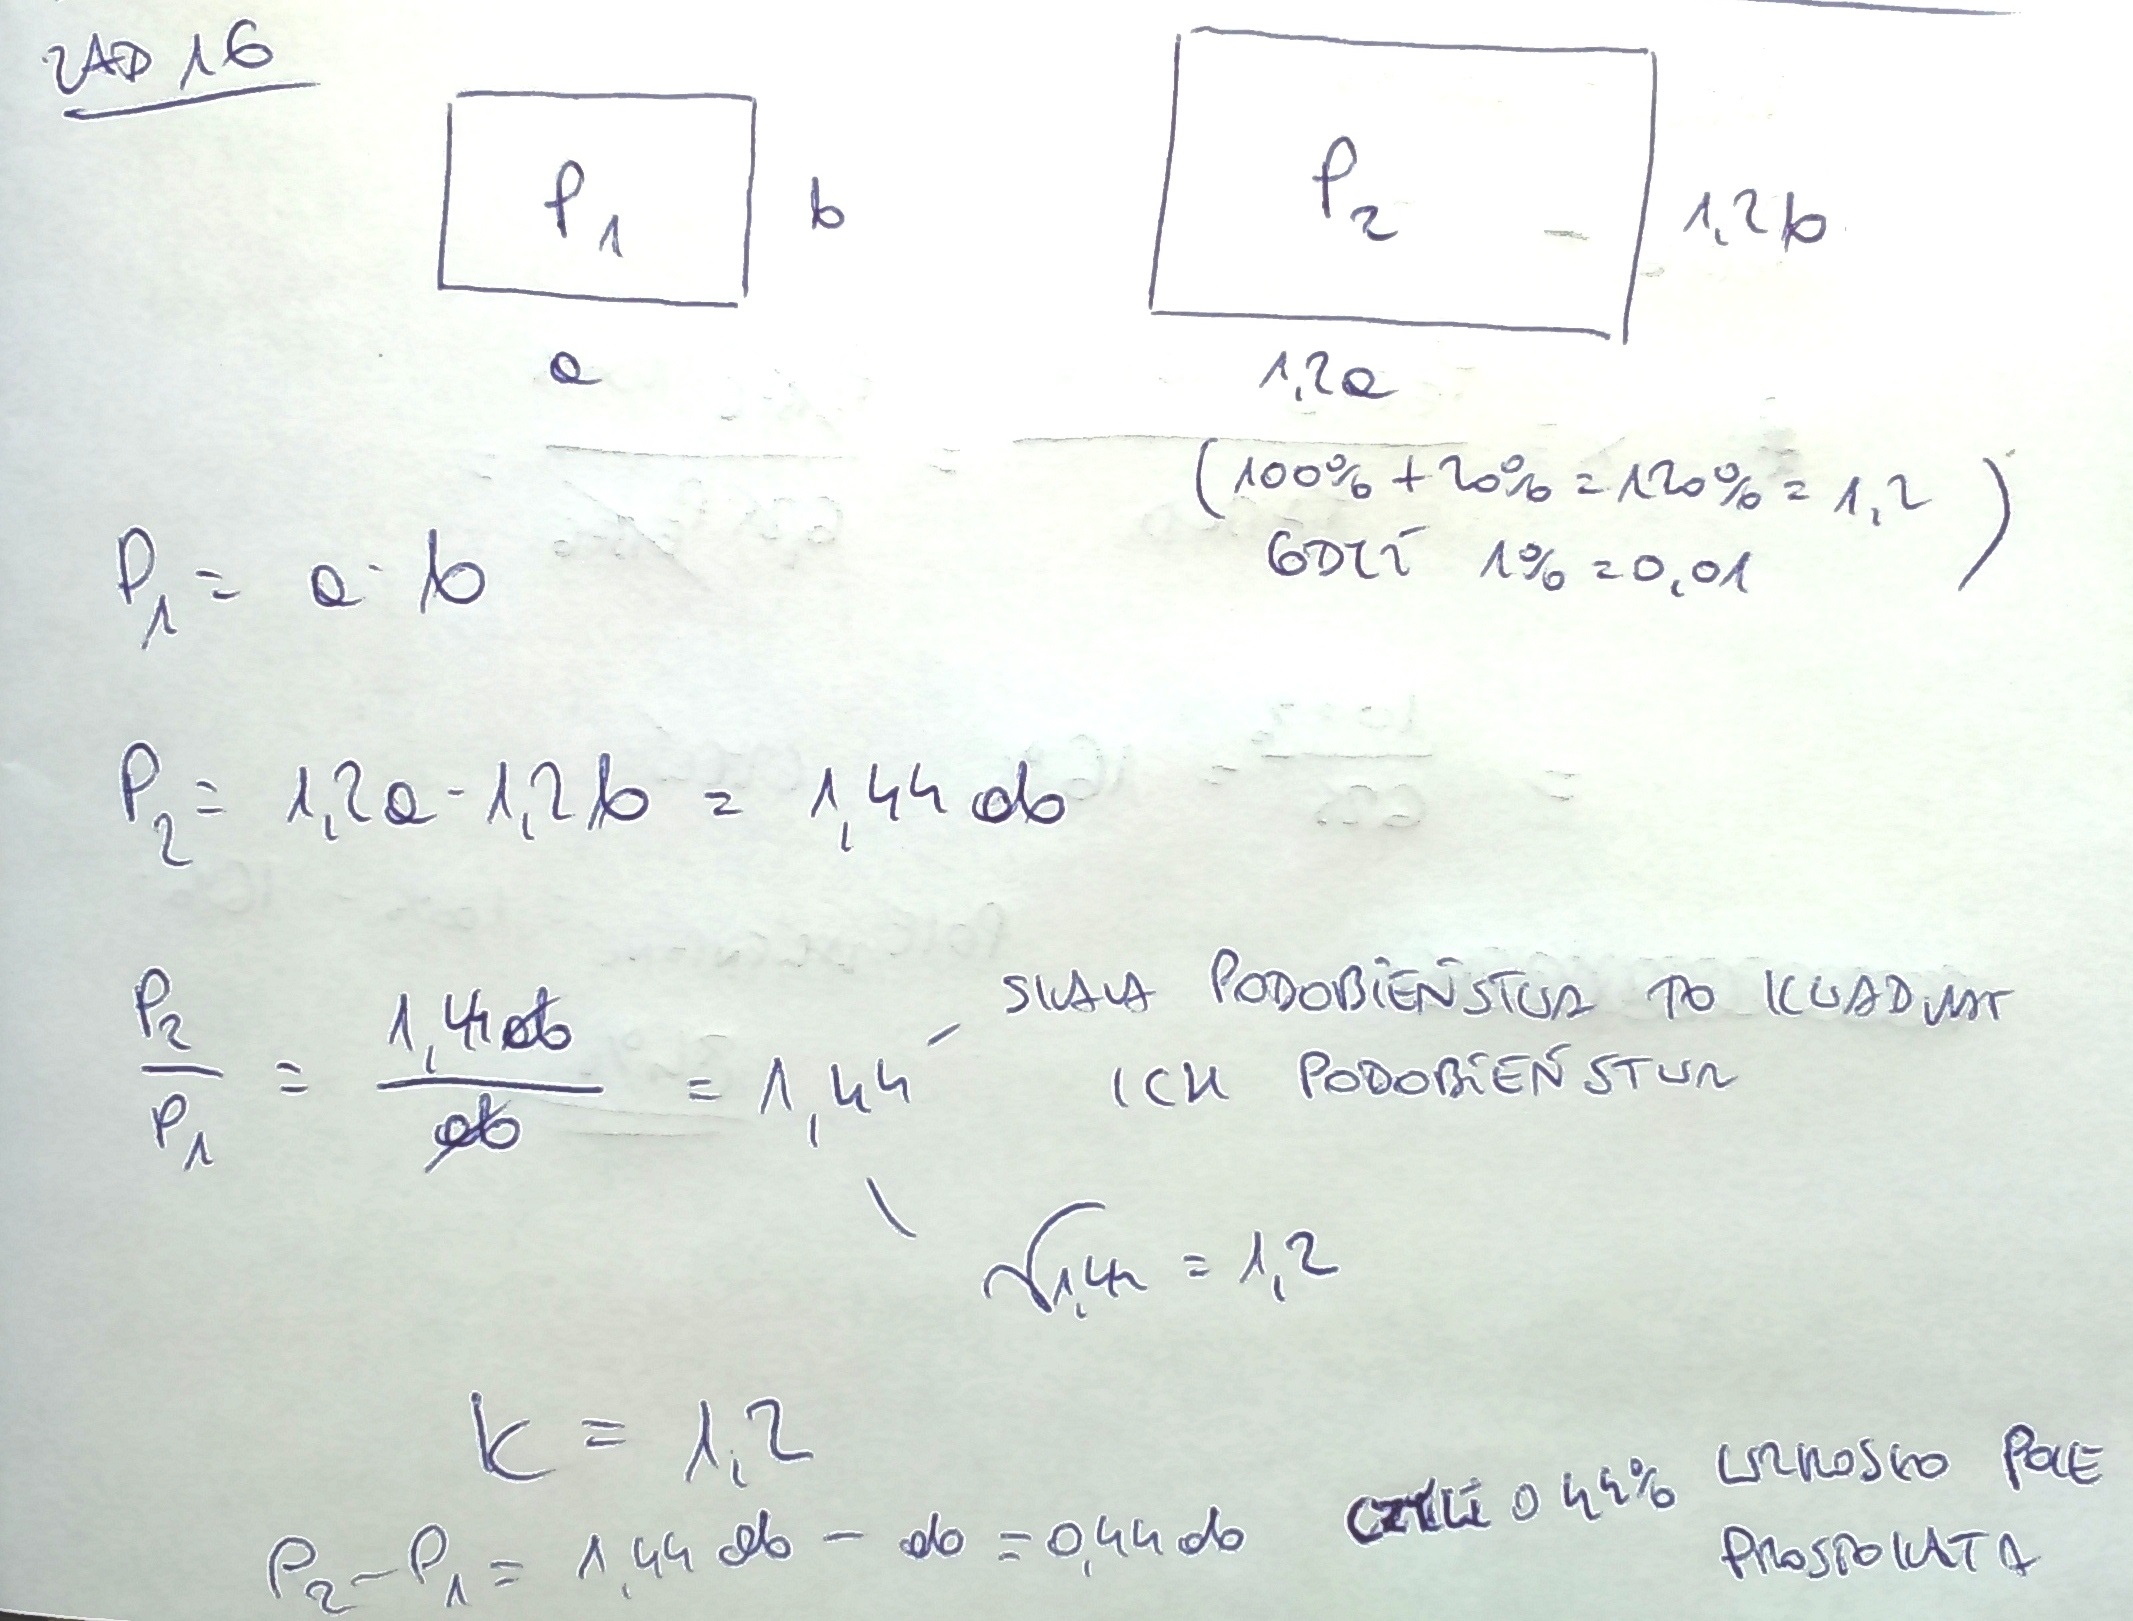 ZAD 16
P₁ b
P₂ 1,2b
a 1,2a
(100% + 20% = 120% = 1,2)
GDZIE 1% = 0,01
P₁ = a · b
P₂ = 1,2a · 1,2b = 1,44 ab
P₂/P₁ = 1,44ab/ab = 1,44
SKALA PODOBIEŃSTWA TO KWADRAT
ICH PODOBIEŃSTWA
√1,44 = 1,2
k = 1,2
P₂ - P₁ = 1,44 ab - ab = 0,44 ab CZYLI O 44% WZROSŁO POLE
PROSTOKĄTA